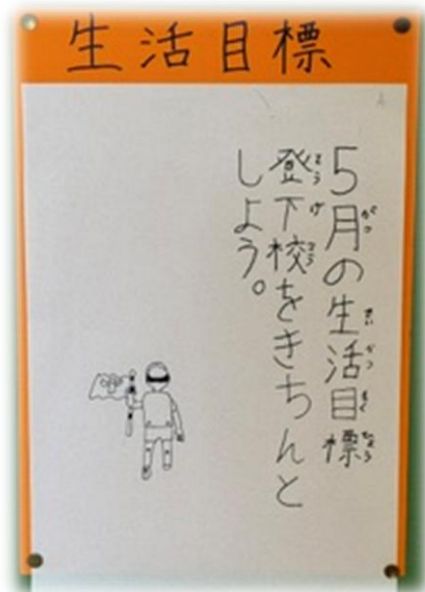 生活目標
5月の生活目標
登下校をきちんと
しよう。